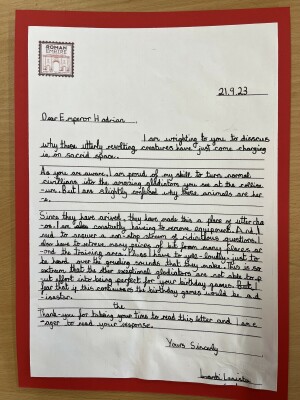 ROMAN
EMPIRE
21.9.23
Dear Emperor Hadrian,
I am wrighting to you to disscus
why those utterly revolting creatures have just come charging
in on sacred space.
As you are aware, I am proud of my skill to turn normal
civillians into the amazing gladiators you see at the
But I am slightly confused why these animals are her
-e.
Since they have arrived, they have made this a place of utter cha
-os. I am also constantly having to remove equipment. And I
had to answer a non-stop stream of ridiculous questions. I
also have to retrieve many pieces of kit from many places ar
-ound the training area. Plus I have to yell loudly just to
be heard over the sounds that they make. This is so
extream that the other exeptional gladiators are not able to p
-ut effort into being perfect for your birthday games. But I
fear that if this continues the birthday games would be a d
-isaster.
the
Thank-you for taking your time to read this letter and I am e
-ager to read your response.
Yours Sincerly